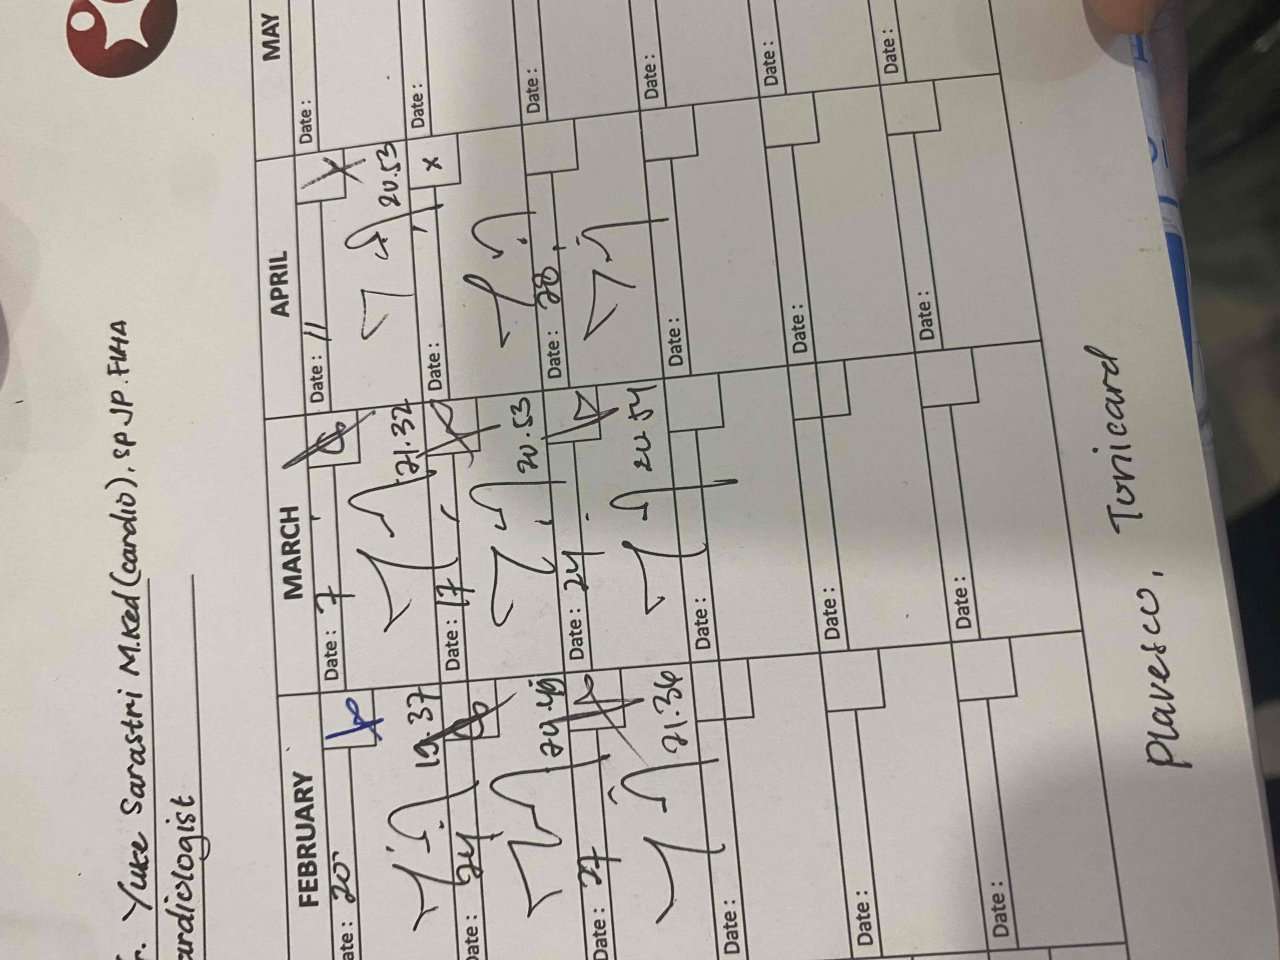 Yuke Sarastri M.Ked (cardio), SpJP.FIHA
cardiologist
FEBRUARY MARCH APRIL MAY
Date: 20 Date: 7 Date: 11 Date:
19.37 21.32 20.53
Date: 24 Date: 17 Date: Date:
20.53
Date: 27 Date: 24 Date: 28 Date:
21.36 20.54
Date: Date: Date: Date:
Date: Date: Date: Date:
Date: Date: Date: Date:
Plavesco, Tonicard